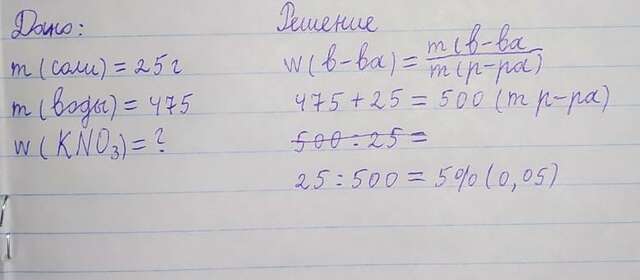 Дано:
m (соли) = 25 г
m (воды) = 475
w (KNO₃) = ?
Решение
w (в-ва) = m (в-ва / m (р-ра)
475 + 25 = 500 (m р-ра)
500 : 25 =
25 : 500 = 5% (0,05)